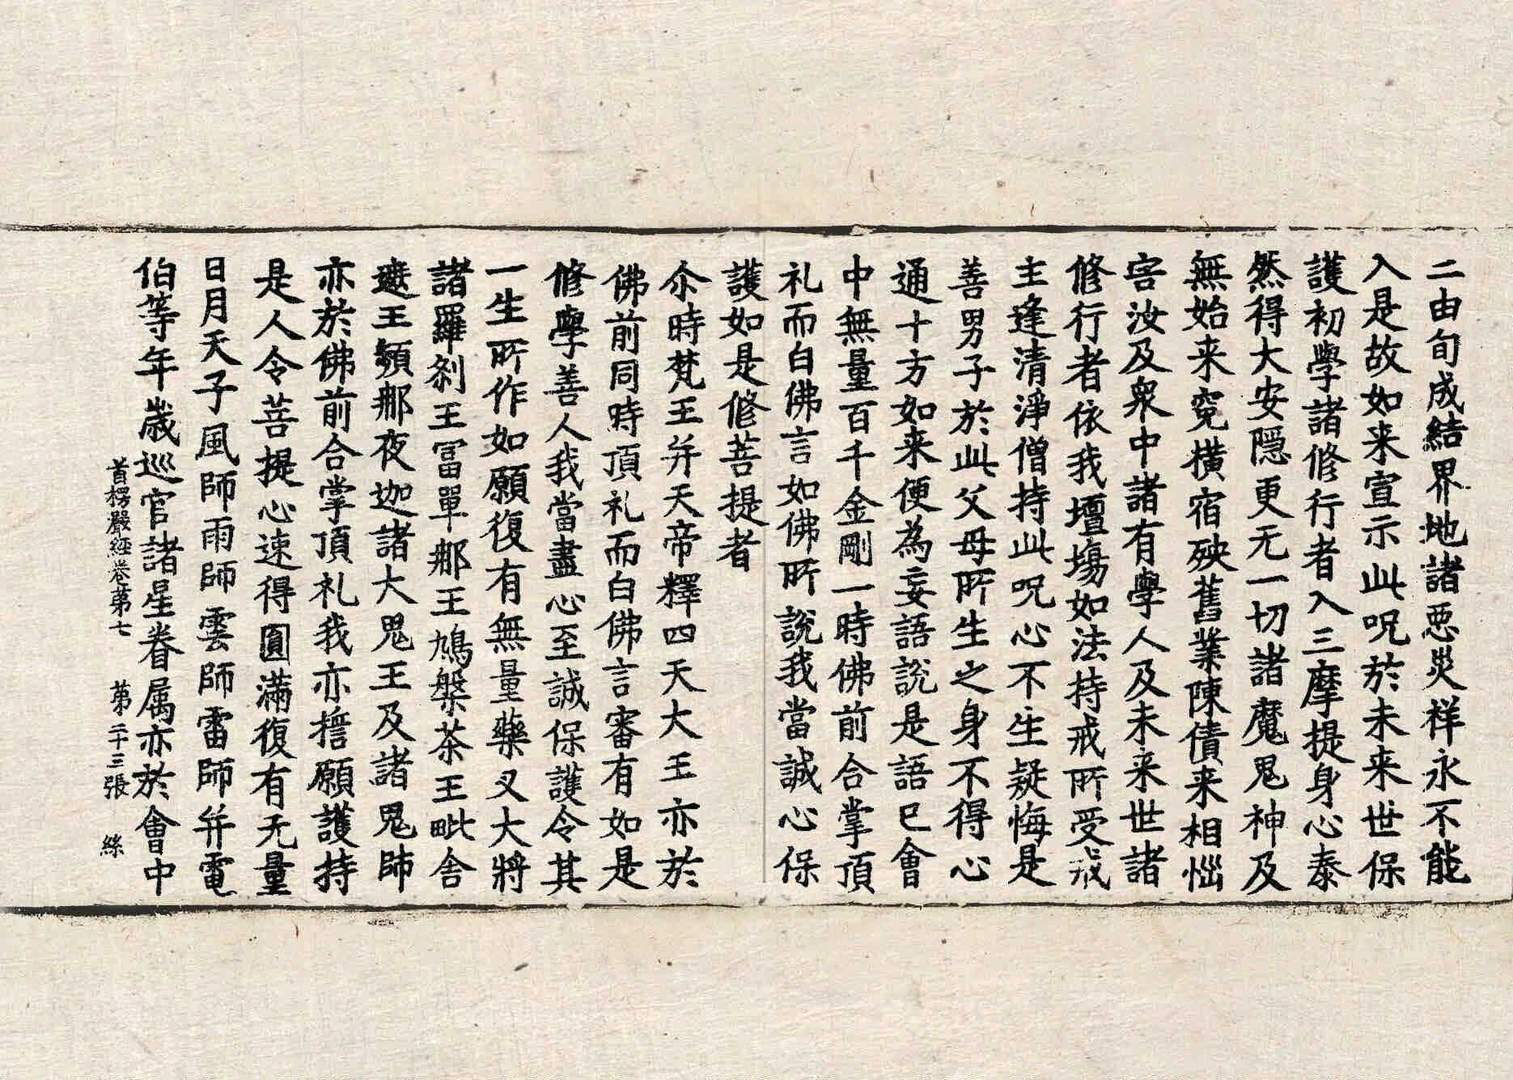 二由旬成結界地諸惡災祥永不能
入是故如来宣示此呪於未来世保
護初學諸修行者入三摩提身心泰
然得大安隱更无一切諸魔鬼神及
無始来寃橫宿殃舊業陳債来相惱
害汝及衆中諸有學人及未来世諸
修行者依我壇塲如法持戒所受戒
主逢清淨僧持此呪心不生疑悔是
善男子於此父母所生之身不得心
通十方如来便為妄語說是語已會
中無量百千金剛一時佛前合掌頂
礼而白佛言如佛所說我當誠心保
護如是修菩提者
尒時梵王并天帝釋四天大王亦於
佛前同時頂礼而白佛言審有如是
修學善人我當盡心至誠保護令其
一生所作如願復有無量藥叉大將
諸羅剎王冨單那王鳩槃茶王毗舍
遮王頻那夜迦諸大鬼王及諸鬼師
亦於佛前合掌頂礼我亦擔願護持
是人令菩提心速得圓滿復有无量
日月天子風師雨師雲師雷師并電
伯等年歲巡官諸星眷属亦於會中
首楞嚴經卷第七 第二十三張 絲